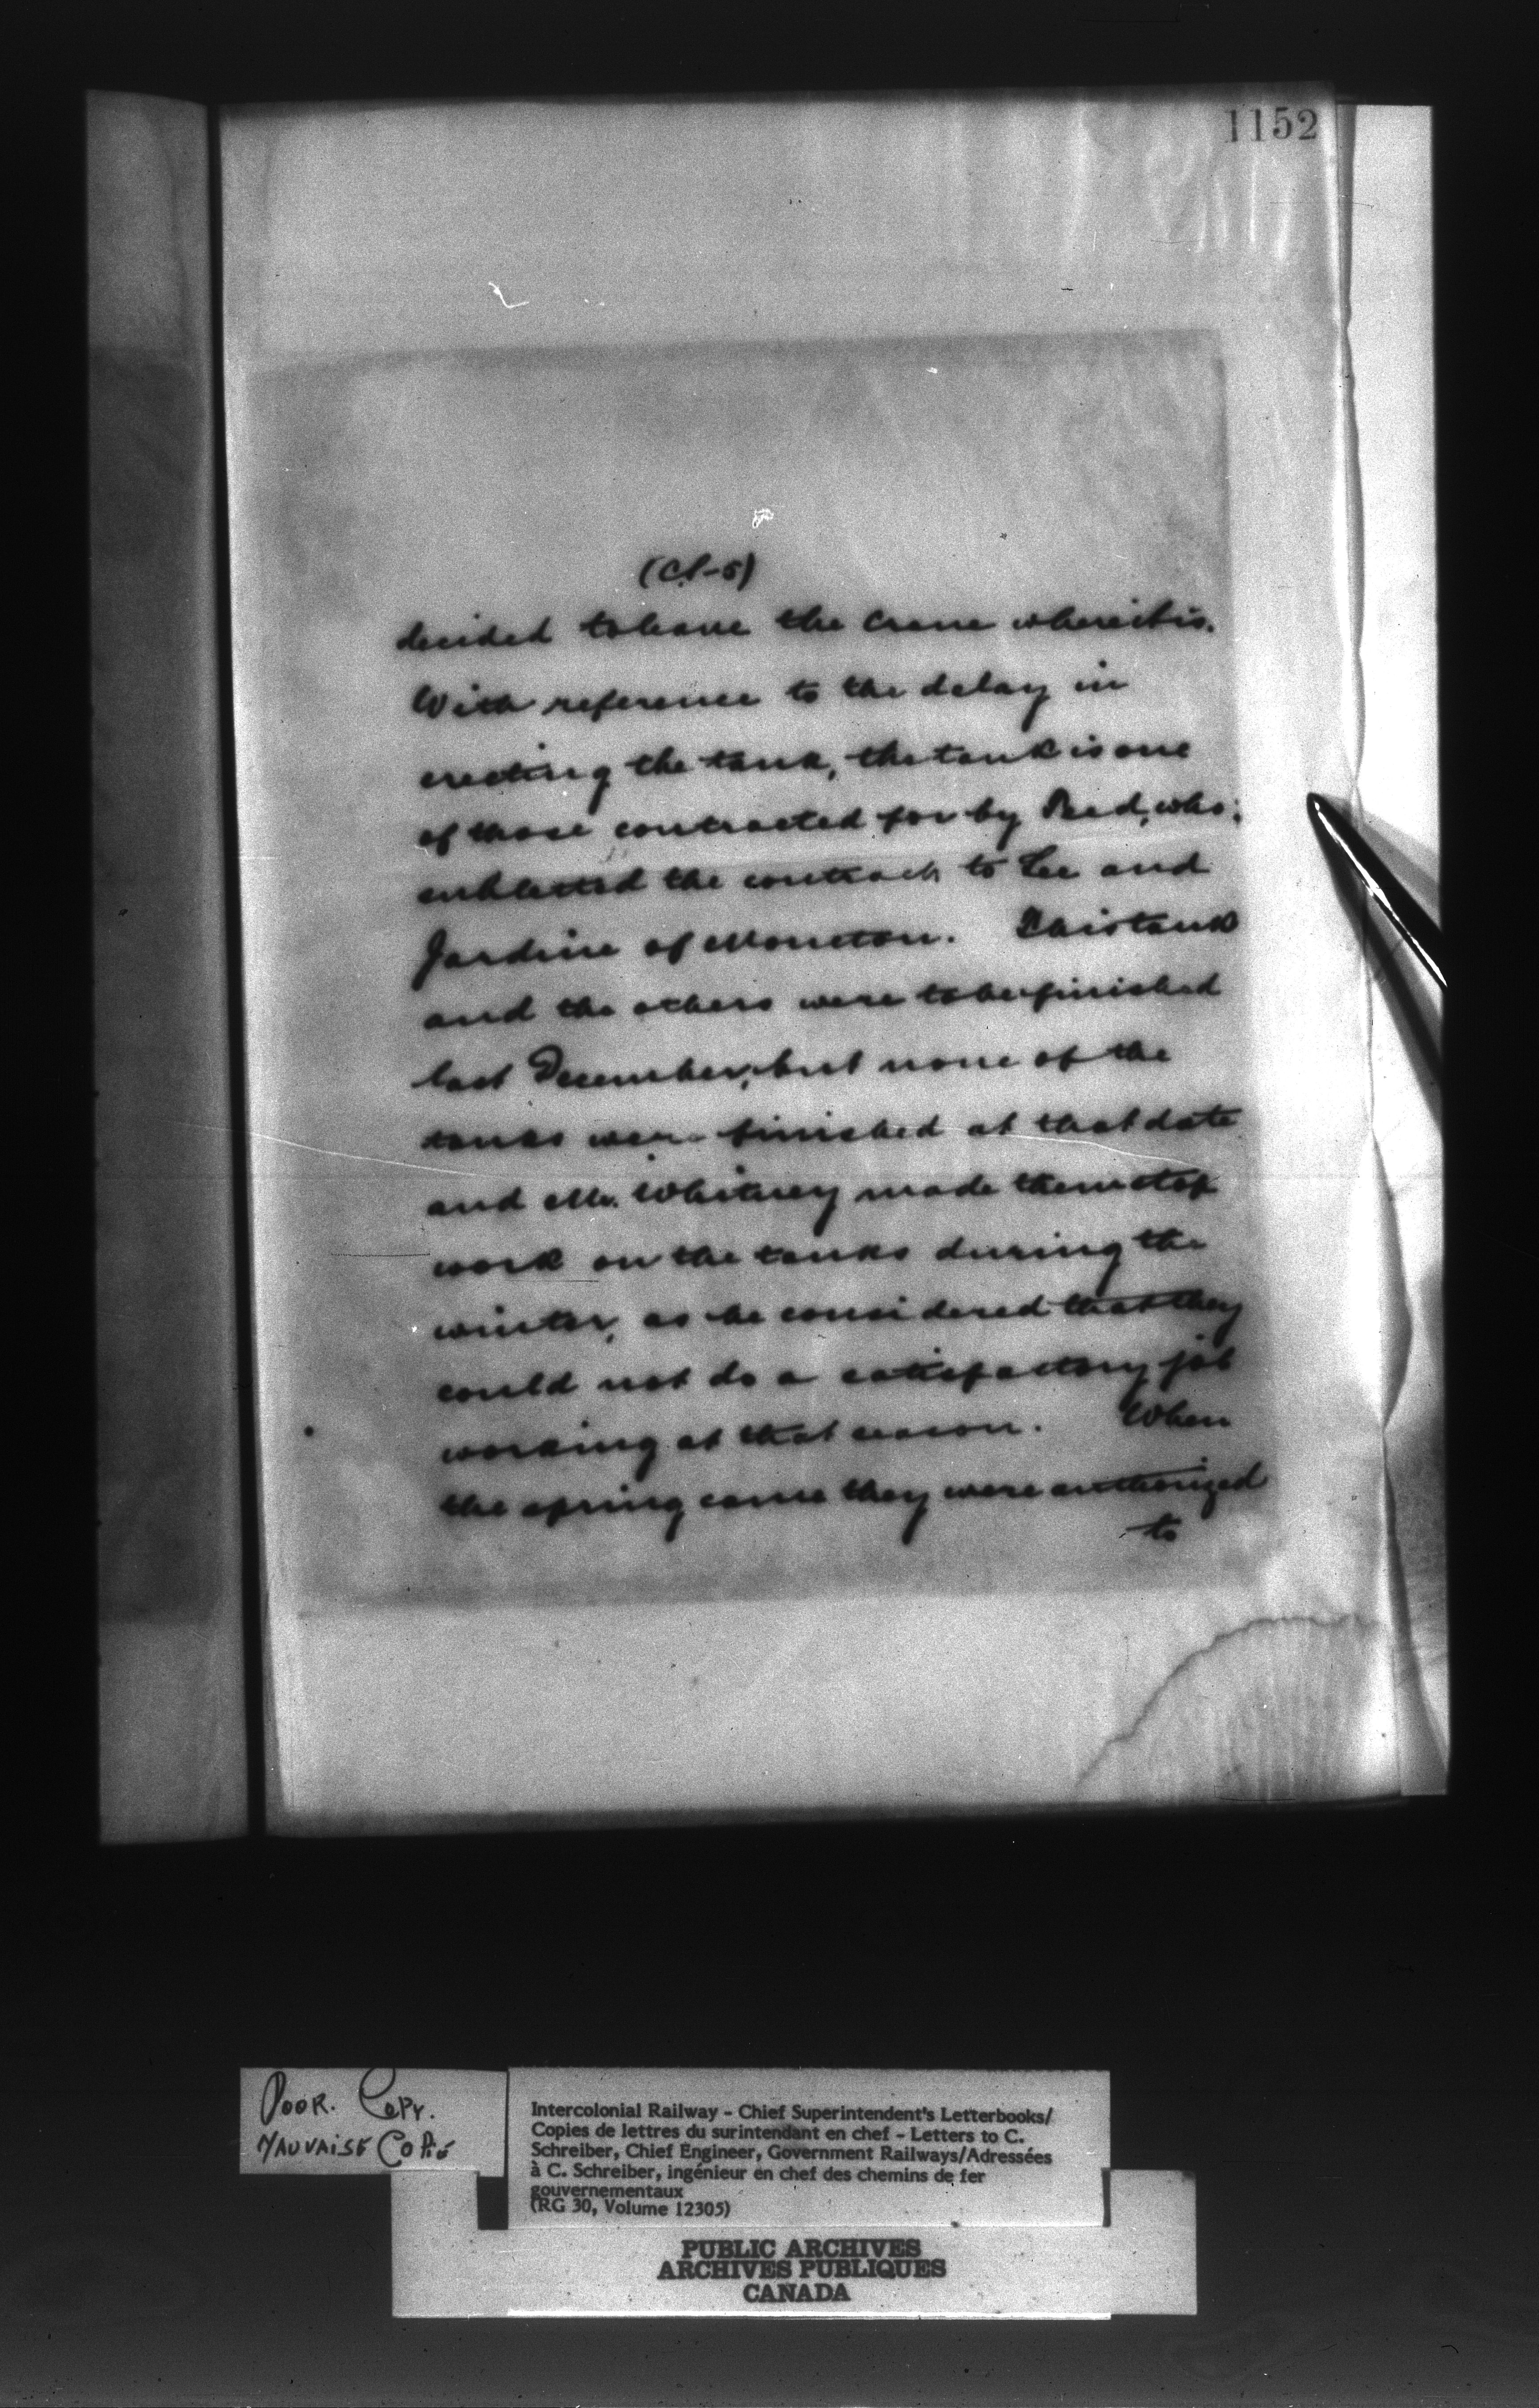 1152
(C.S-5)
decided to leave the crane where it is.
With reference to the delay in
erecting the tank, the tank is one
of those contracted for by Reed, who
subletted the contract to Lee and
Jardine of Moncton. This tank
and the others were to be finished
last December, but none of the
tanks were finished at that date
and Mr. Whitney made them stop
work on the tanks during the
winter, as he considered that they
could not do a satisfactory job
working at that season. When
the spring came they were authorized
to
POOR. COPY.
MAUVAISE COPIE
Intercolonial Railway - Chief Superintendent's Letterbooks/
Copies de lettres du surintendant en chef - Letters to C.
Schreiber, Chief Engineer, Government Railways/Adressées
à C. Schreiber, ingénieur en chef des chemins de fer
gouvernementaux
(RG 30, Volume 12305)
PUBLIC ARCHIVES
ARCHIVES PUBLIQUES
CANADA